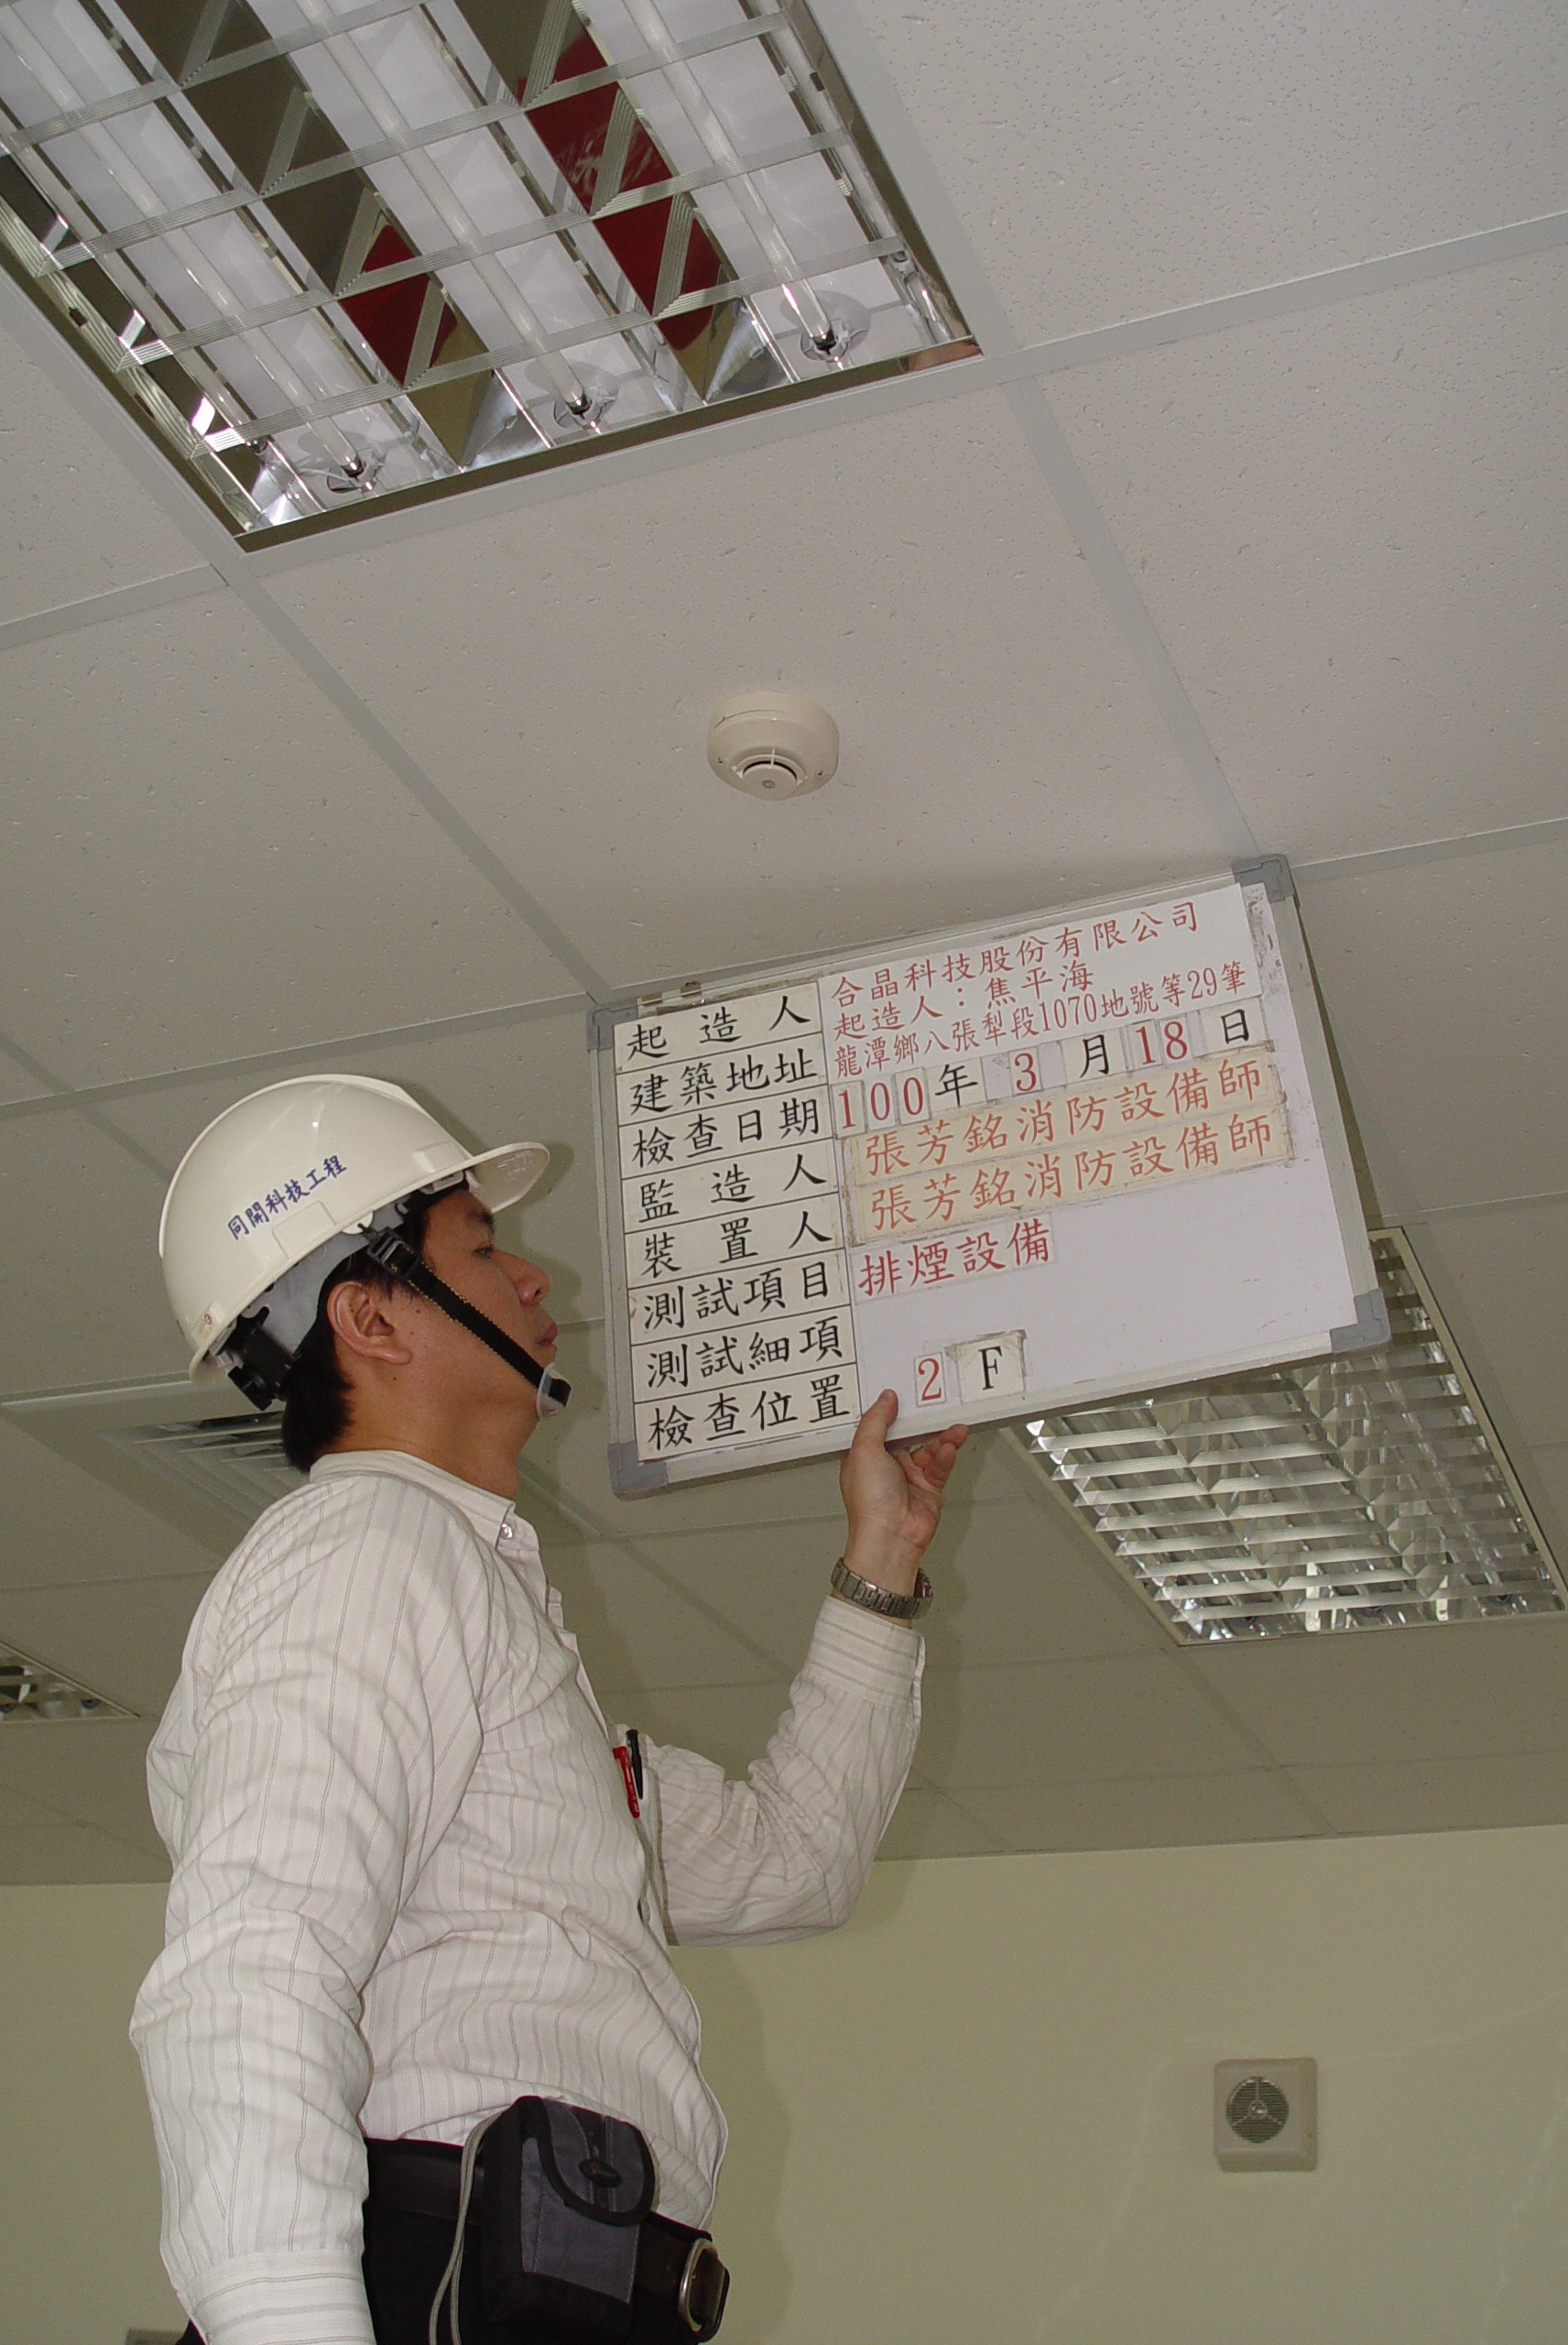 起造人 合晶科技股份有限公司
起造人：焦平海
建築地址 龍潭鄉八張犁段1070地號等29筆
檢查日期 100年3月18日
監造人 張芳銘消防設備師
裝置人 張芳銘消防設備師
測試項目 排煙設備
測試細項
檢查位置 2F
同開科技工程